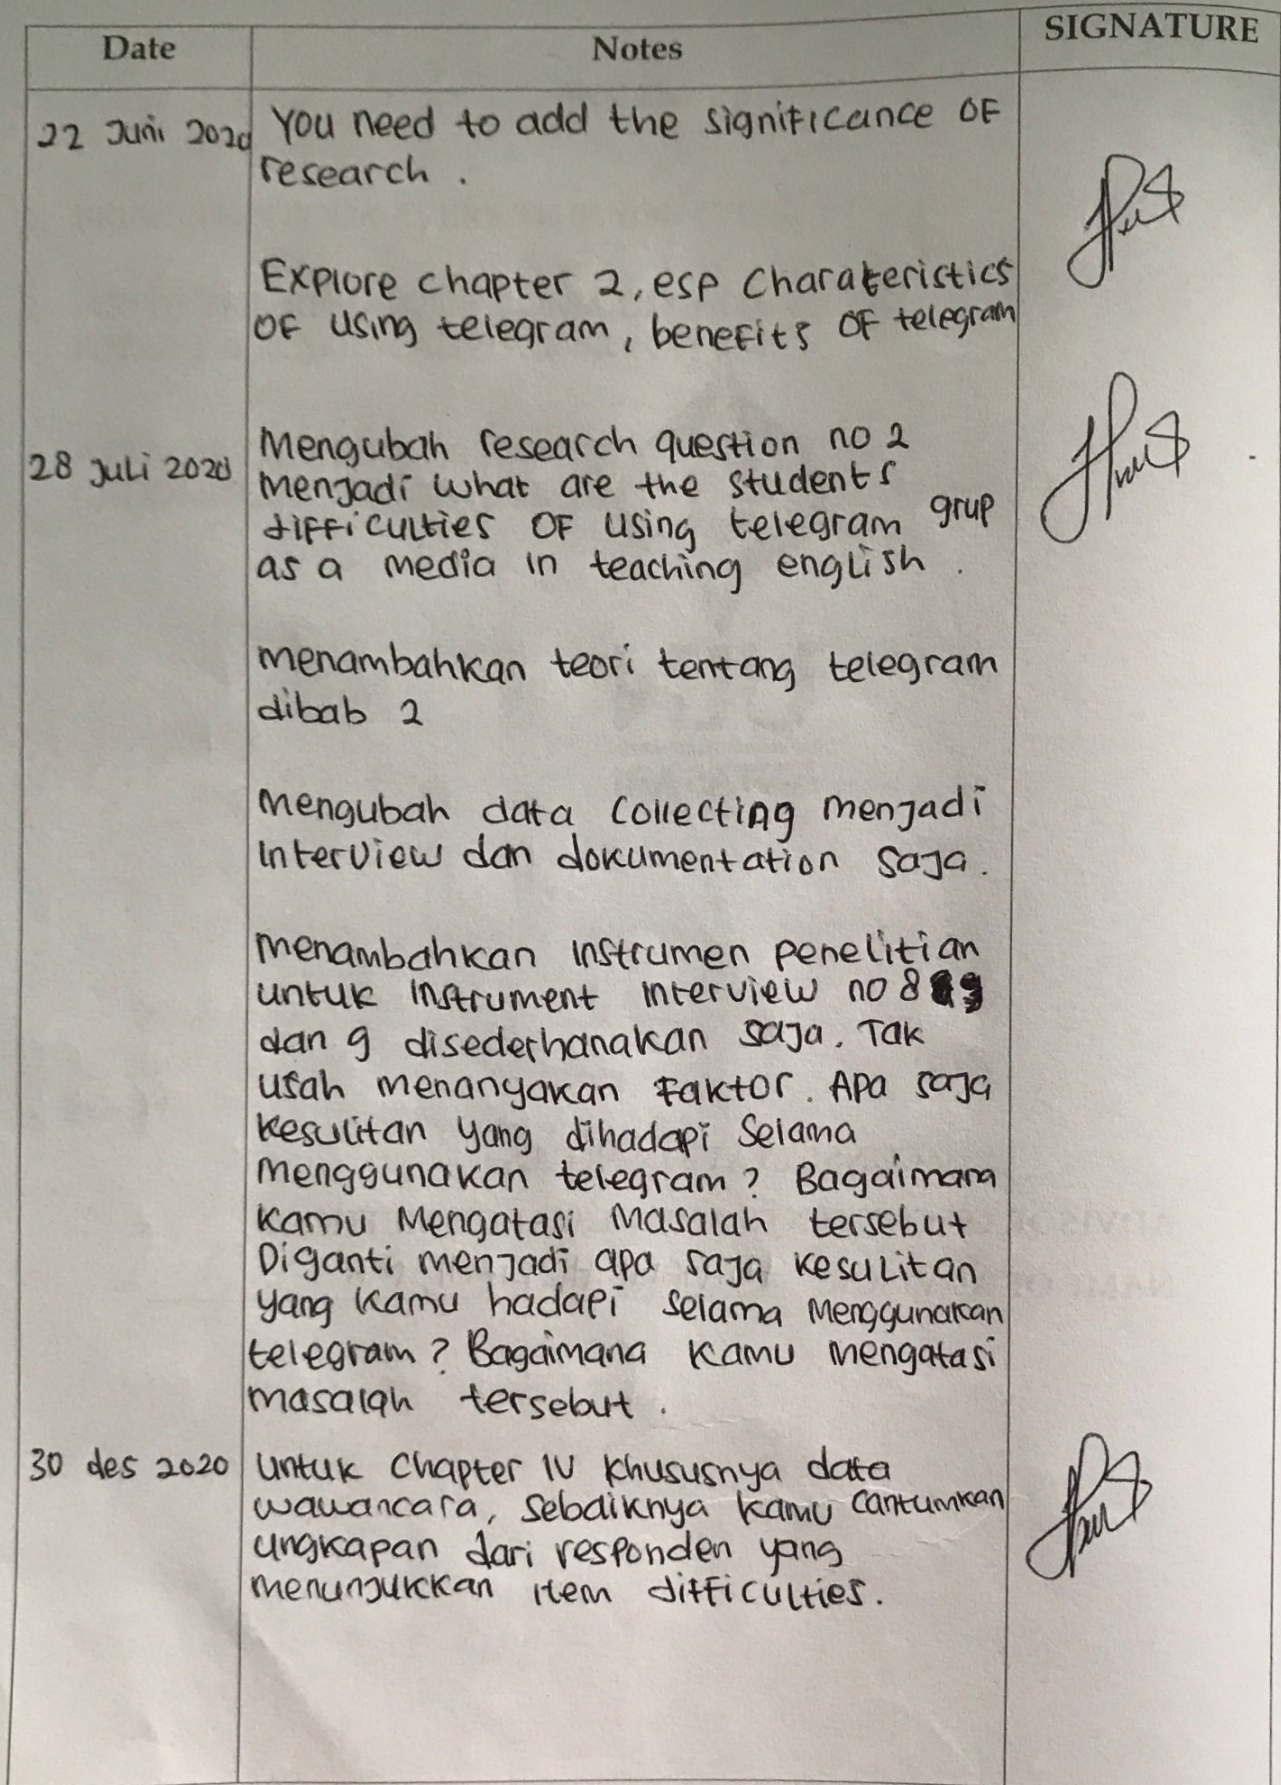 Date Notes SIGNATURE
22 Juni 2020 You need to add the significance OF
research .
Explore chapter 2, esp Charateristics
OF using telegram, benefits OF telegram
28 Juli 2020 Mengubah research question no 2
menjadi what are the students
difficulties OF using telegram grup
as a media in teaching english .
menambahkan teori tentang telegram
dibab 2
mengubah data collecting menjadi
interview dan dokumentation saja.
menambahkan instrumen penelitian
untuk instrument interview no 8
dan 9 disederhanakan saja. Tak
usah menanyakan Faktor. Apa saja
kesulitan yang dihadapi selama
menggunakan telegram? Bagaimana
kamu Mengatasi Masalah tersebut
Diganti menjadi apa saja kesulitan
yang kamu hadapi selama menggunakan
telegram? Bagaimana kamu mengatasi
masalah tersebut .
30 des 2020 untuk Chapter IV khususnya data
wawancara, sebaiknya kamu cantumkan
ungkapan dari responden yang
menunjukkan item difficulties.